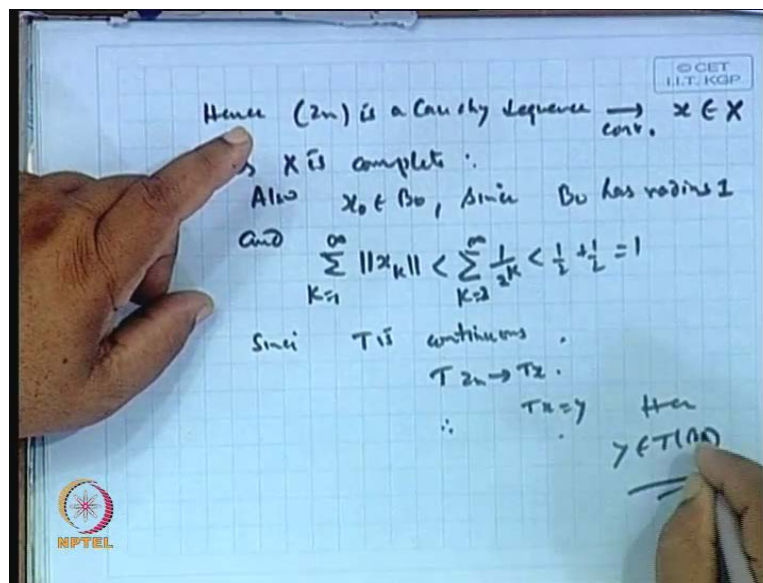 © CET
I.I.T. KGP
Hence (zn) is a Cauchy sequence ⟶ x ∈ X
conv.
X is complete.
Also x₀ ∈ B₀, Since B₀ has radius 1
and ∞ ∑ K=1 ||x_K|| < ∞ ∑ K=1 1/2^K < 1/2 + 1/2 = 1
Since T is continuous.
T zn → Tx.
∴ Tx = y Hen
y ∈ T(
NPTEL